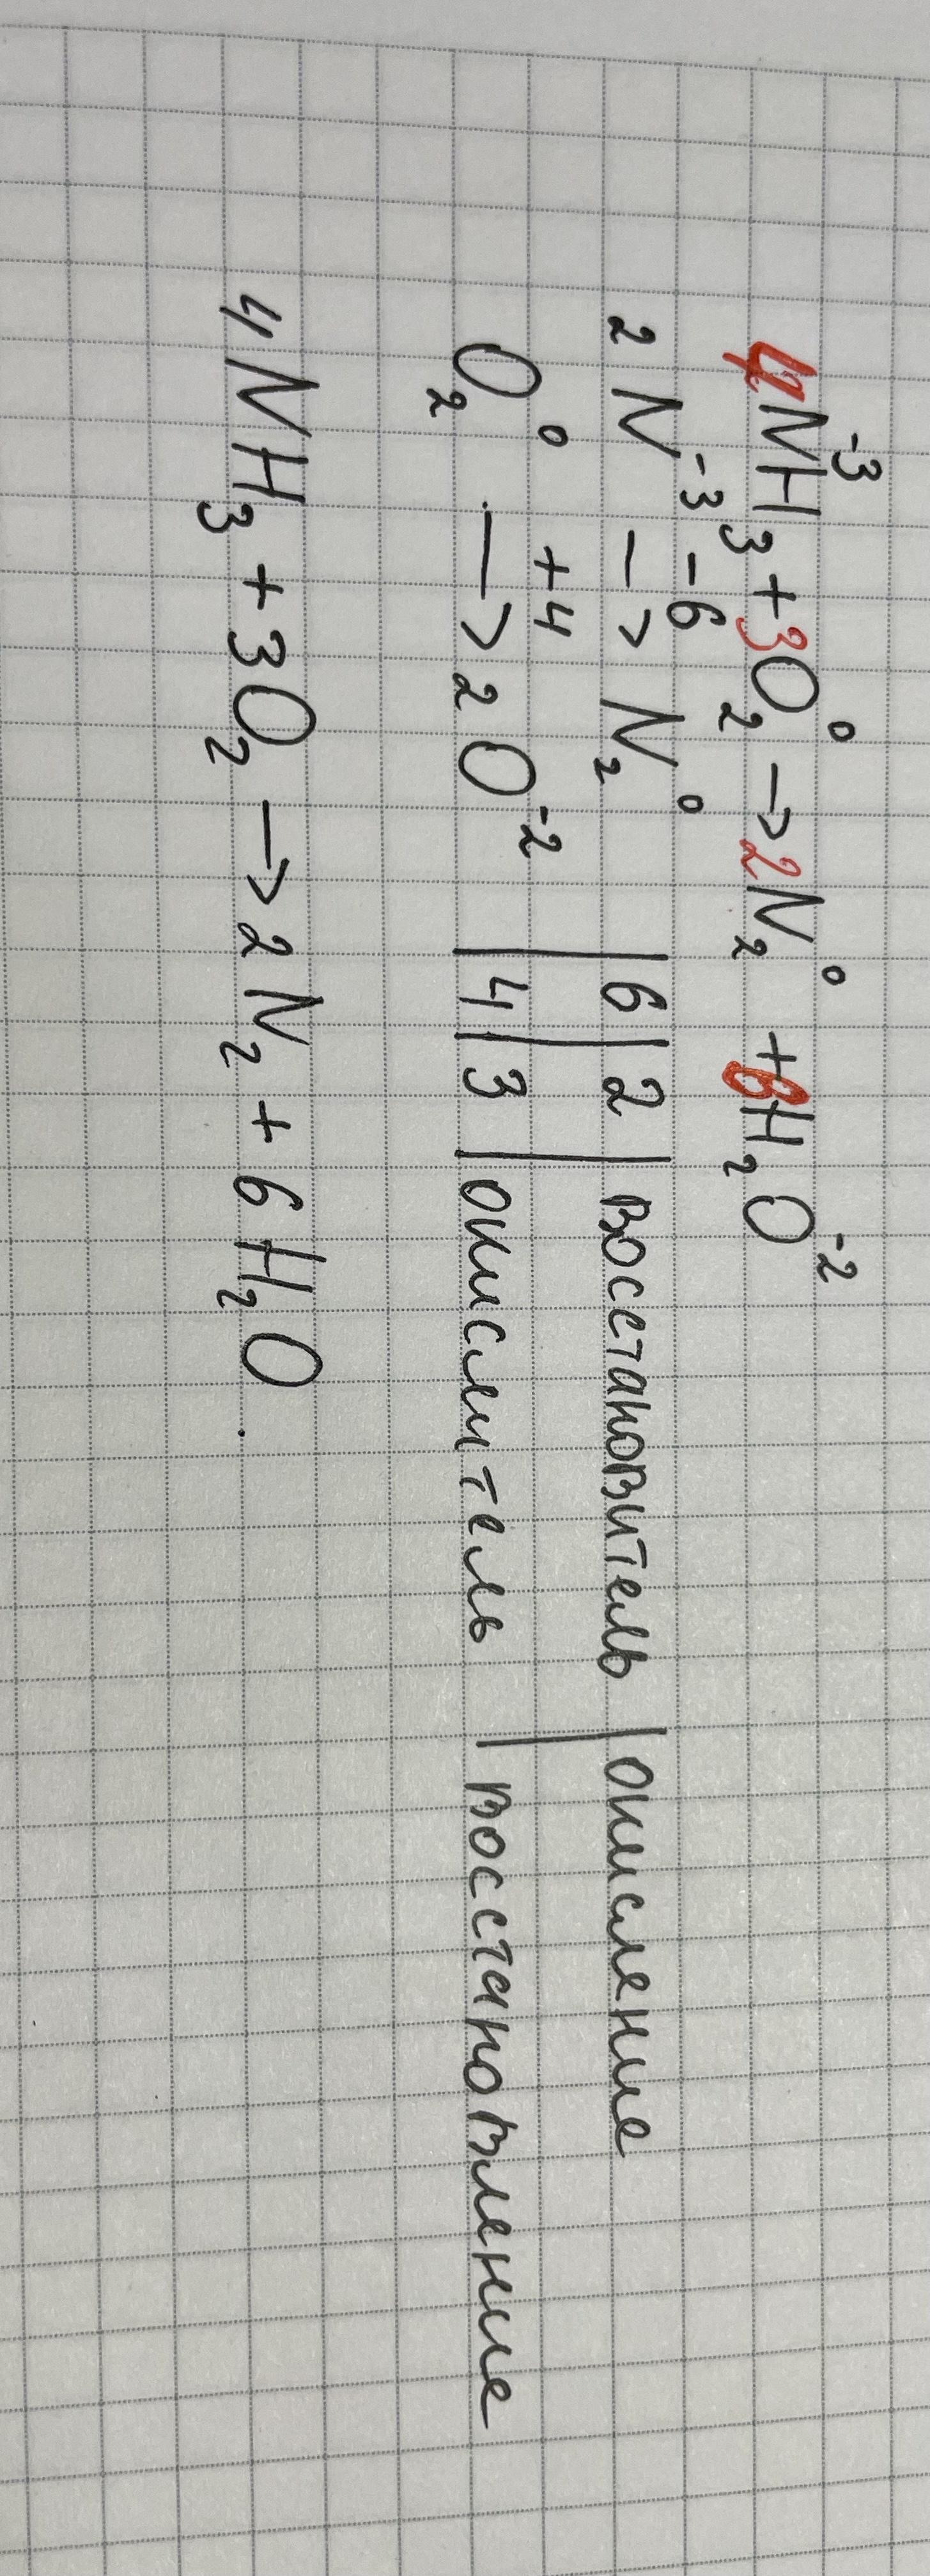 4N⁻³H₃ + 3O₂⁰ → 2N₂⁰ + 6H₂O⁻²
2N⁻³ –⁻⁶→ N₂⁰ | 6 | 2 | восстановитель | окисление
O₂⁰ –⁺⁴→ 2O⁻² | 4 | 3 | окислитель | восстановление
4NH₃ + 3O₂ → 2N₂ + 6H₂O.